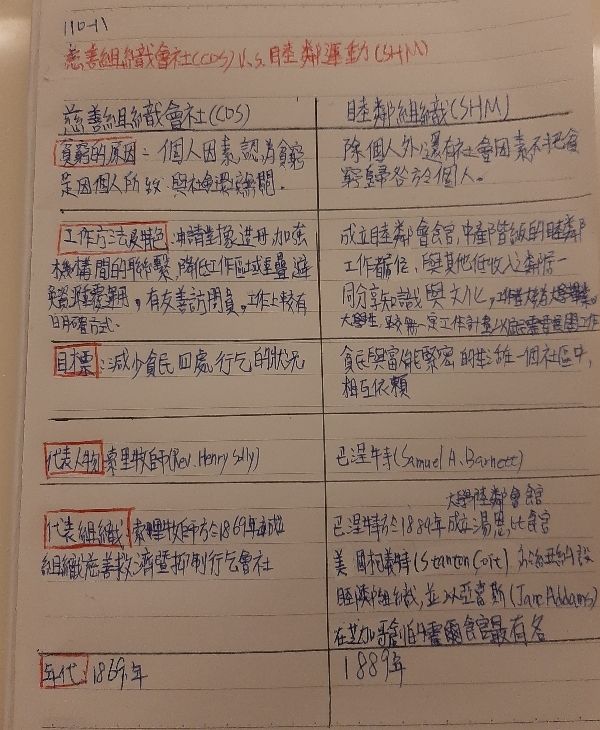 110-11
慈善組織會社(COS) V.S. 睦鄰運動(SHM)
慈善組織會社(COS)
睦鄰組織(SHM)
貧窮的原因：個人因素,認為貧窮
是因個人所致 與社會環境無關.
除個人外,還有社會因素,不把貧
窮歸咎於個人。
工作方法及特色:申請對象造冊,加強
機構間的聯繫,降低工作區域重疊,避
免資源重覆運用，有友善訪問員,工作上較有
明確方式.
成立睦鄰會館,中產階級的睦鄰
工作者居住,與其他低收入鄰居一
同分享知識與文化,工作者大多大學畢業or
大學生,較無一定工作計畫,以居民需要推展工作
目標:減少貧民四處行乞的狀況
貧民與富能緊密的生活在一個社區中,
相互依賴
代表人物:索里牧師(Rev. Henry Solly)
巴涅特(Samuel A. Barnett)
代表組織:索里牧師於1869年成立
組織慈善救濟暨抑制行乞會社
大學睦鄰會館
巴涅特於1884年成湯恩比會館
美國柯義特(Stanton Coit)於紐約設
睦鄰組織,並以亞當斯(Jane Addams)
在芝加哥創的霍爾會館最有名
年代:1869年
1889年